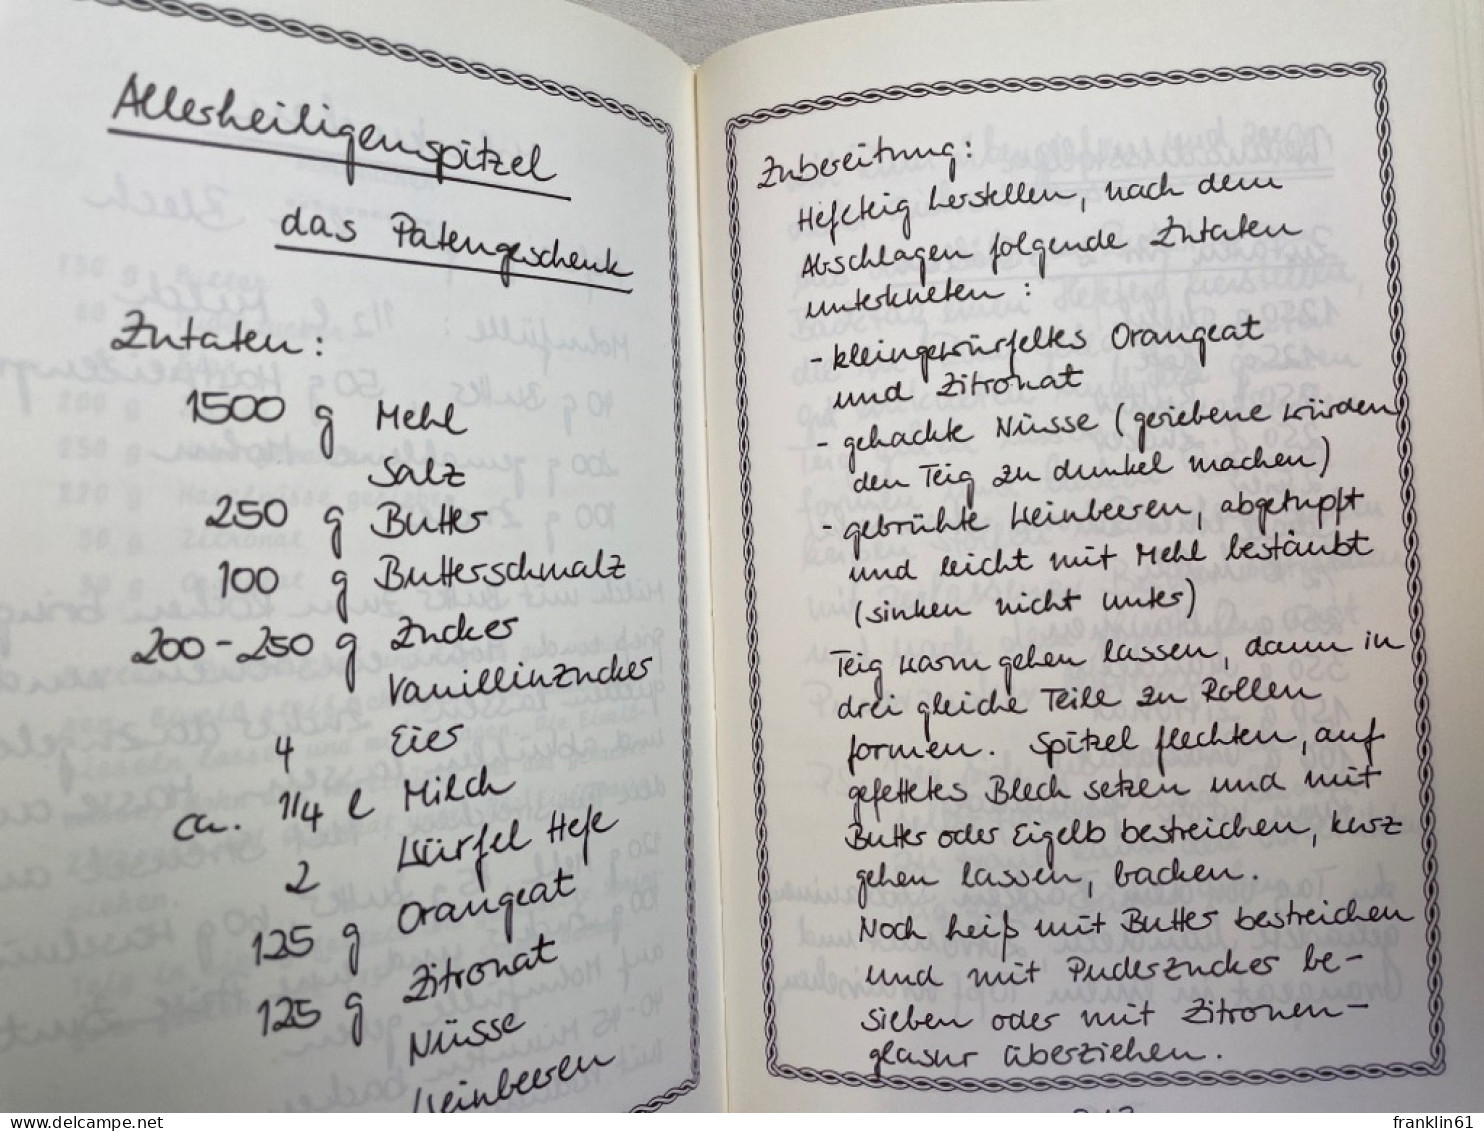 Allerheiligenspitzel
das Patengeschenk
Zutaten:
1500 g Mehl
Salz
250 g Butter
100 g Butterschmalz
200-250 g Zucker
Vanillinzucker
4 Eier
ca. 1/4 l Milch
2 Würfel Hefe
125 g Orangeat
125 g Zitronat
Nüsse
Weinbeeren
Zubereitung:
Hefeteig herstellen, nach dem
Abschlagen folgende Zutaten
unterkneten:
- kleingewürfeltes Orangeat
und Zitronat
- gehackte Nüsse (geriebene würden
den Teig zu dunkel machen)
- gebrühte Weinbeeren, abgetupft
und leicht mit Mehl bestäubt
(sinken nicht unter)
Teig warm gehen lassen, dann in
drei gleiche Teile zu Rollen
formen. Spitzel flechten, auf
gefettetes Blech setzen und mit
Butter oder Eigelb bestreichen, kurz
gehen lassen, backen.
Noch heiß mit Butter bestreichen
und mit Puderzucker be-
sieben oder mit Zitronen-
glasur überziehen.
delcampe.net
franklin61